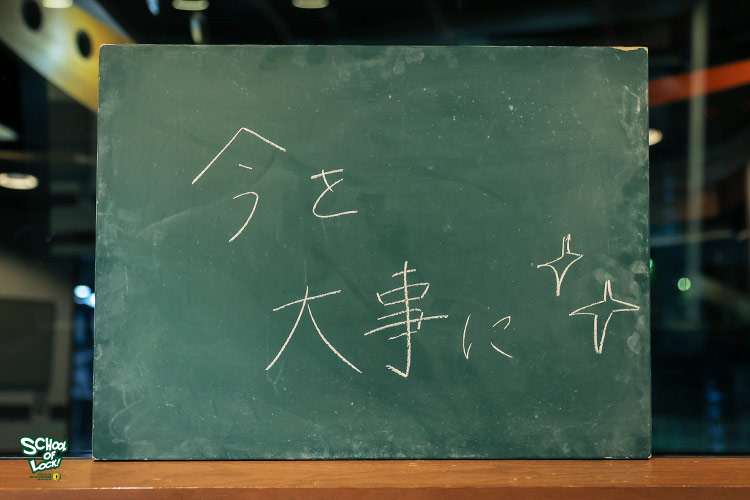 今を
大事に
SCHOOL
OF
LOCK!